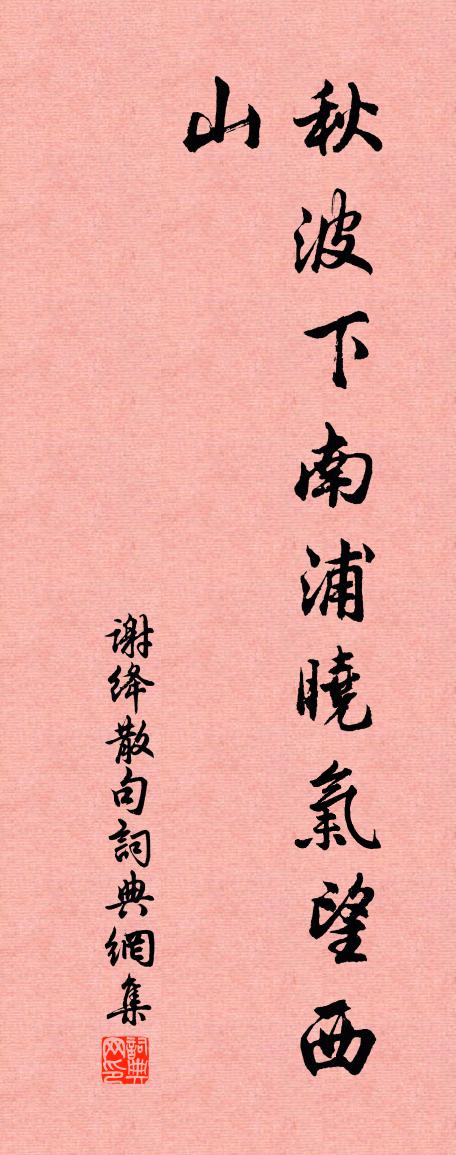 秋波下南浦曉氣望西
山
谢绛散句詞典網集
詞典
网印